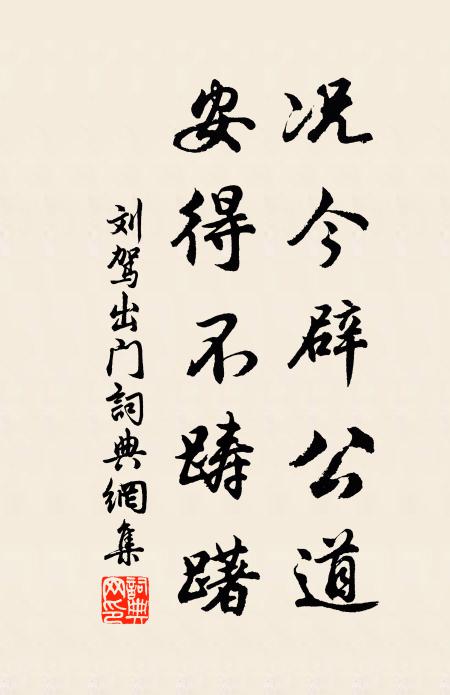 况今辟公道
安得不踌躇
刘驾出门词典網集
詞典网印